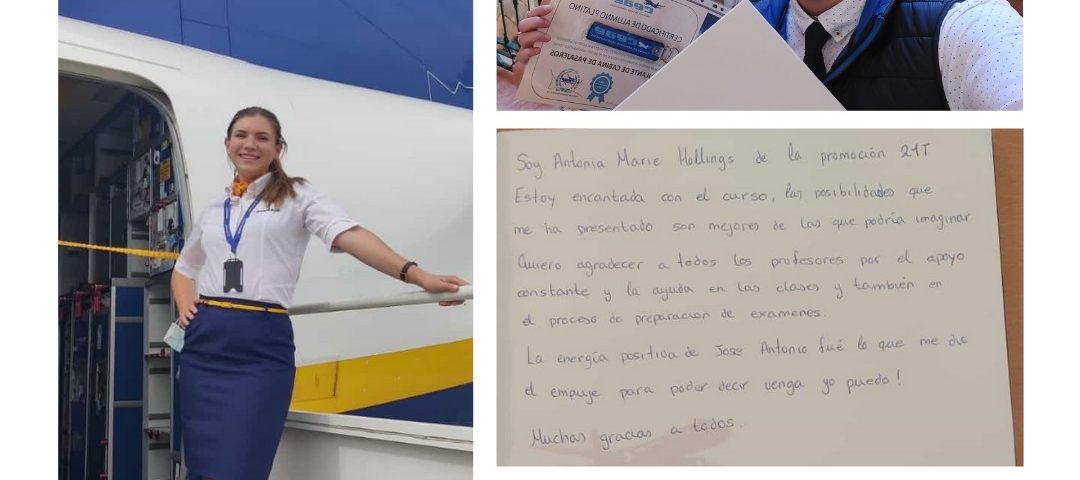 CERTIFICADO DE ALUMNO PLATINO
ceae
TRIPULANTE DE CABINA DE PASAJEROS
Soy Antonia Marie Hollings de la promoción 21T
Estoy encantada con el curso, las posibilidades que
me ha presentado son mejores de las que podría imaginar
Quiero agradecer a todos los profesores por el apoyo
constante y la ayuda en las clases y también en
el proceso de preparacion de examenes.
La energía positiva de Jose Antonio fué lo que me dio
el empuje para poder decir venga yo puedo!
Muchas gracias a todos.